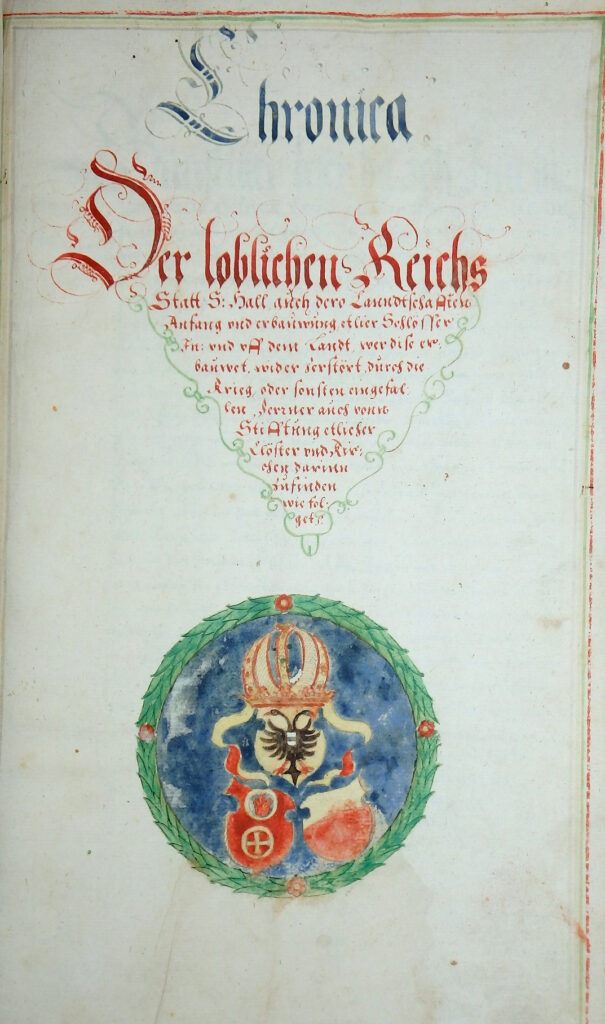 Chronica
Der loblichen Reichs
Statt S: Hall auch dero Lanndtschafften
Anfang vnd erbauwung etlier Schlösser
In: vnd vff dem Landt, wer dise er,
bauwet, wider Zerstört, durch die
Krieg, oder sonsten eingefal,
len, Ferner auch vonn
Stifftung etlicher
Clöster vnd Kir,
chen darinn
Zufinden
wie fol,
get.